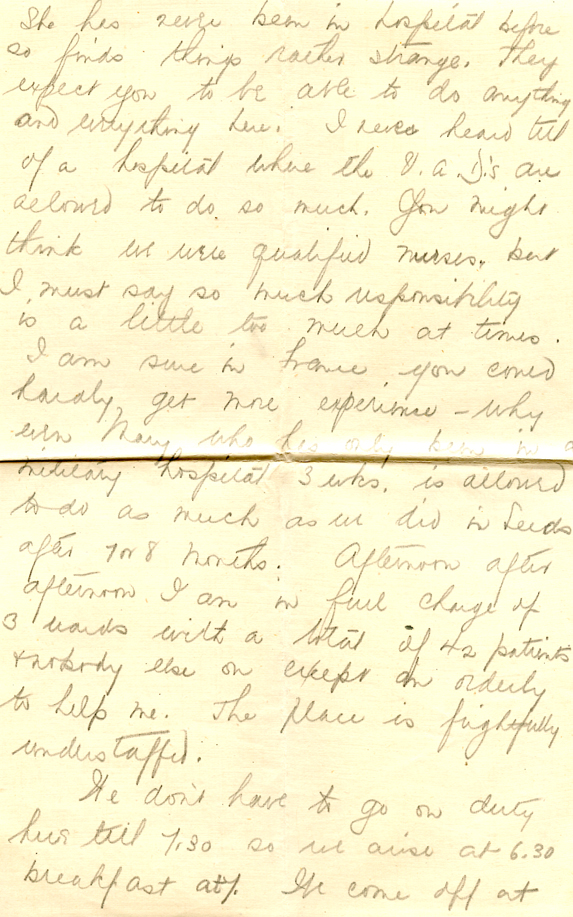 She has never been in hospital before
so finds things rather strange. They
expect you to be able to do anything
and everything here. I never heard tell
of a hospital where the V.A.D.'s are
allowed to do so much. You might
think we were qualified nurses, but
I must say so much responsibility
is a little too much at times.
I am sure in France you could
hardly get more experience - why
even Mary who has only been in a
military hospital 3 wks, is allowed
to do as much as we did in Leeds
after 7 or 8 months. Afternoon after
afternoon I am in full charge of
3 wards with a total of 42 patients
& nobody else on except an orderly
to help me. The place is frightfully
understaffed.
We don't have to go on duty
here till 7.30 so we arise at 6.30
breakfast at 7. We come off at